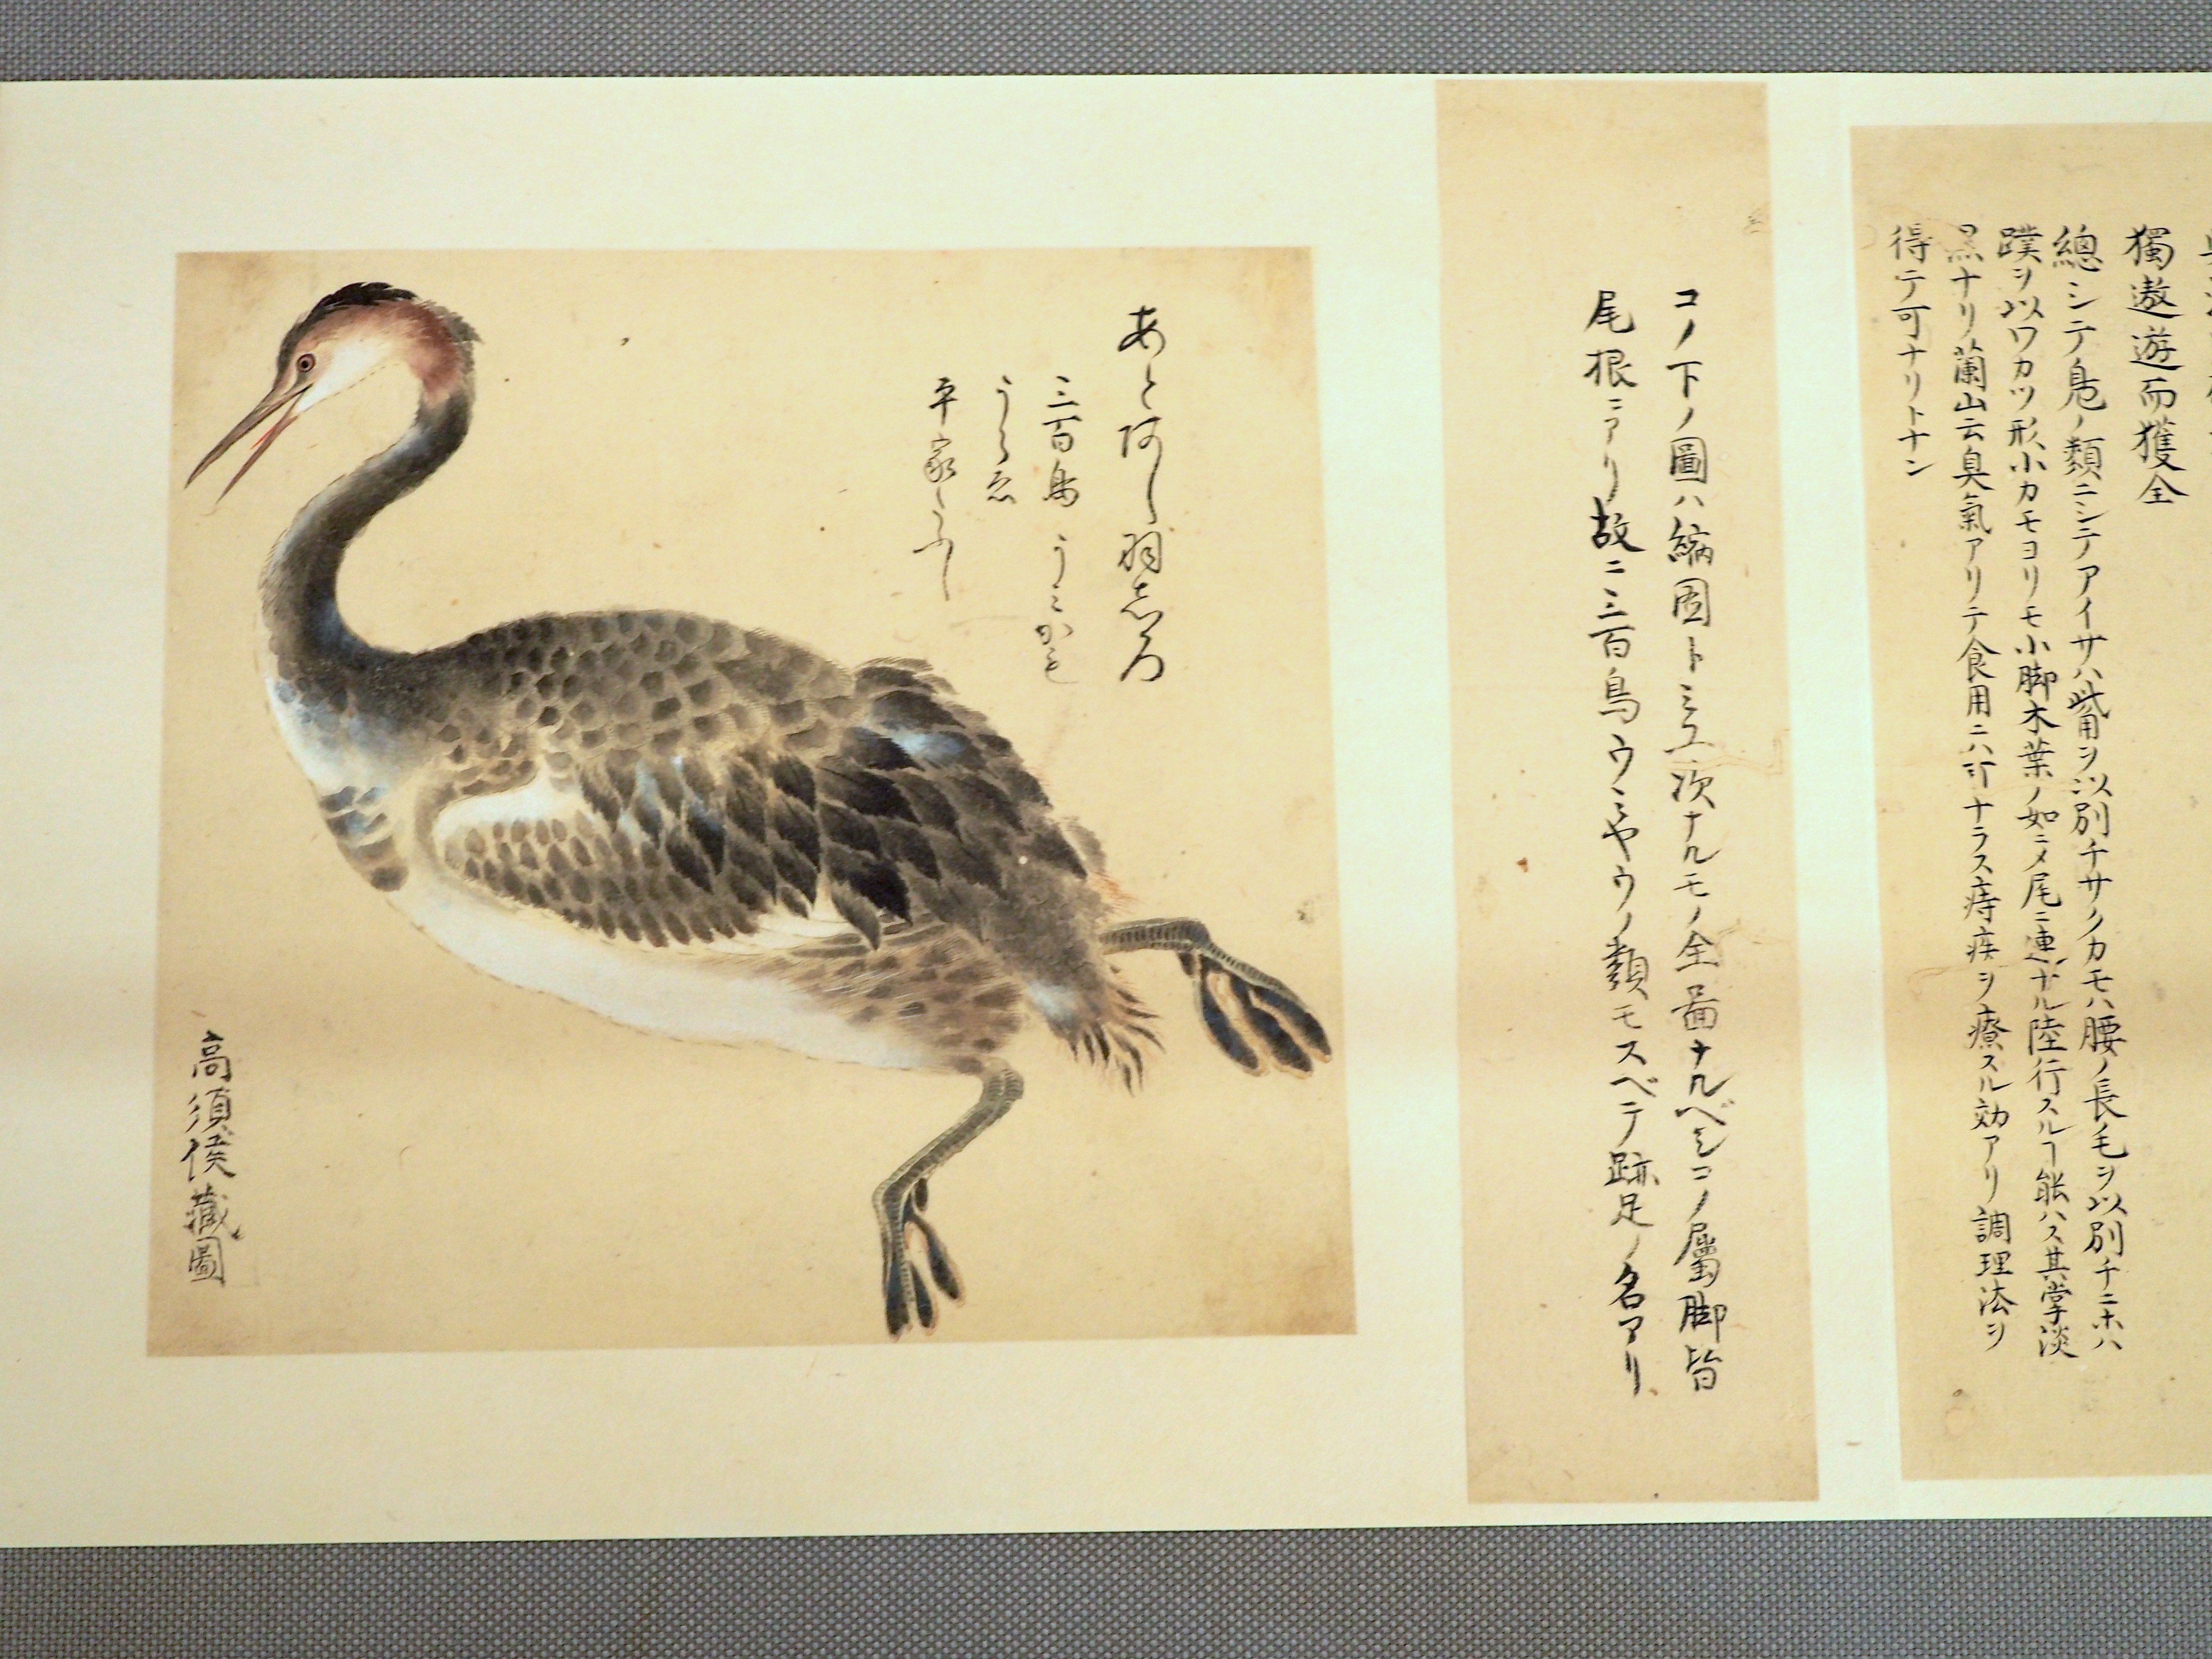 獨遨遊而獲全
總シテ鳧ノ類ニシテアイサハ觜ヲ以別チサクカモハ腰ノ長毛ヲ以別チニホハ
蹼ヲ以ワカツ形小カモヨリモ小脚木葉ノ如ニ〆尾ニ連ナル陸行スルヿ能ハス其掌淡
黒ナリ蘭山云臭氣アリテ食用ニハ可ナラス痔疾ヲ療スル効アリ調理法ヲ
得テ可ナリトナン
コノ下ノ圖ハ縮図トミユ次ナルモノ全圖ナルベシコノ屬脚皆
尾根ニアリ故ニ三百鳥ウミヤウノ類モスベテ跡足ノ名アリ
あと阿し羽志ろ
三百鳥 うミかも
うらゑ
平家
高須侯藏圖